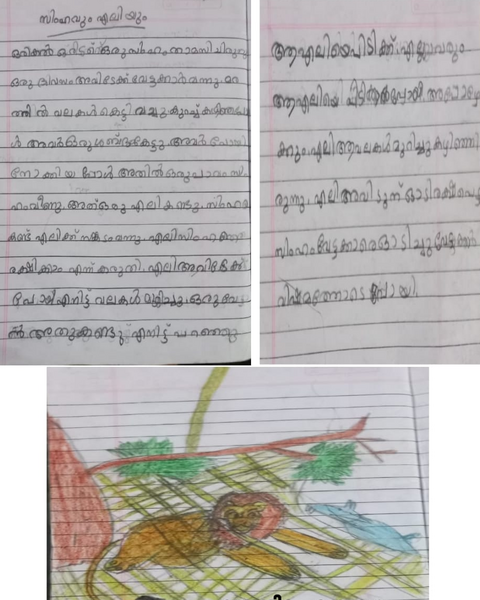 സിംഹവും എലിയും
ഒരിക്കൽ ഒരിടത്ത് ഒരു സിംഹം താമസിച്ചിരുന്നു
ഒരു ദിവസം അവിടേക്ക് വേട്ടക്കാർ വന്നു. മറ
ത്തിൽ വലകൾ കെട്ടി വച്ചു കുറച്ച് കഴിഞ്ഞപ്പോ
ൾ അവർ ഒരു ശബ്ദം കേട്ടു. അവർ പോയി
നോക്കിയപ്പോൾ അതിൽ ഒരു പാവം സിം
ഹം വീണു. അത് ഒരു എലി കണ്ടു. സിംഹത്തെ
കണ്ട് എലിക്ക് സങ്കടം വന്നു. എലി സിംഹത്തെ
രക്ഷിക്കാം എന്ന് കരുതി. എലി അവിടേക്ക്
പോയി എനിട്ട് വലകൾ മുറിച്ചു. ഒരു വേട
ൻ അതുകണ്ടു് എനിട്ട് പറഞ്ഞു
ആ എലിയെ പിടിക്ക്. എല്ലാവരും
ആ എലിയെ പിടിക്കാൻ പോയി
ക്കും എലി ആ വലകൾ മുറിച്ചു കഴിഞ്ഞി
രുന്നു. എലി അവിടുന്ന് ഓടി രക്ഷപെട്ടു
സിംഹം വേട്ടക്കാരെ ഓടിച്ചു വേട്ടക്കാർ
വിഷമത്തോടെ പോയി.